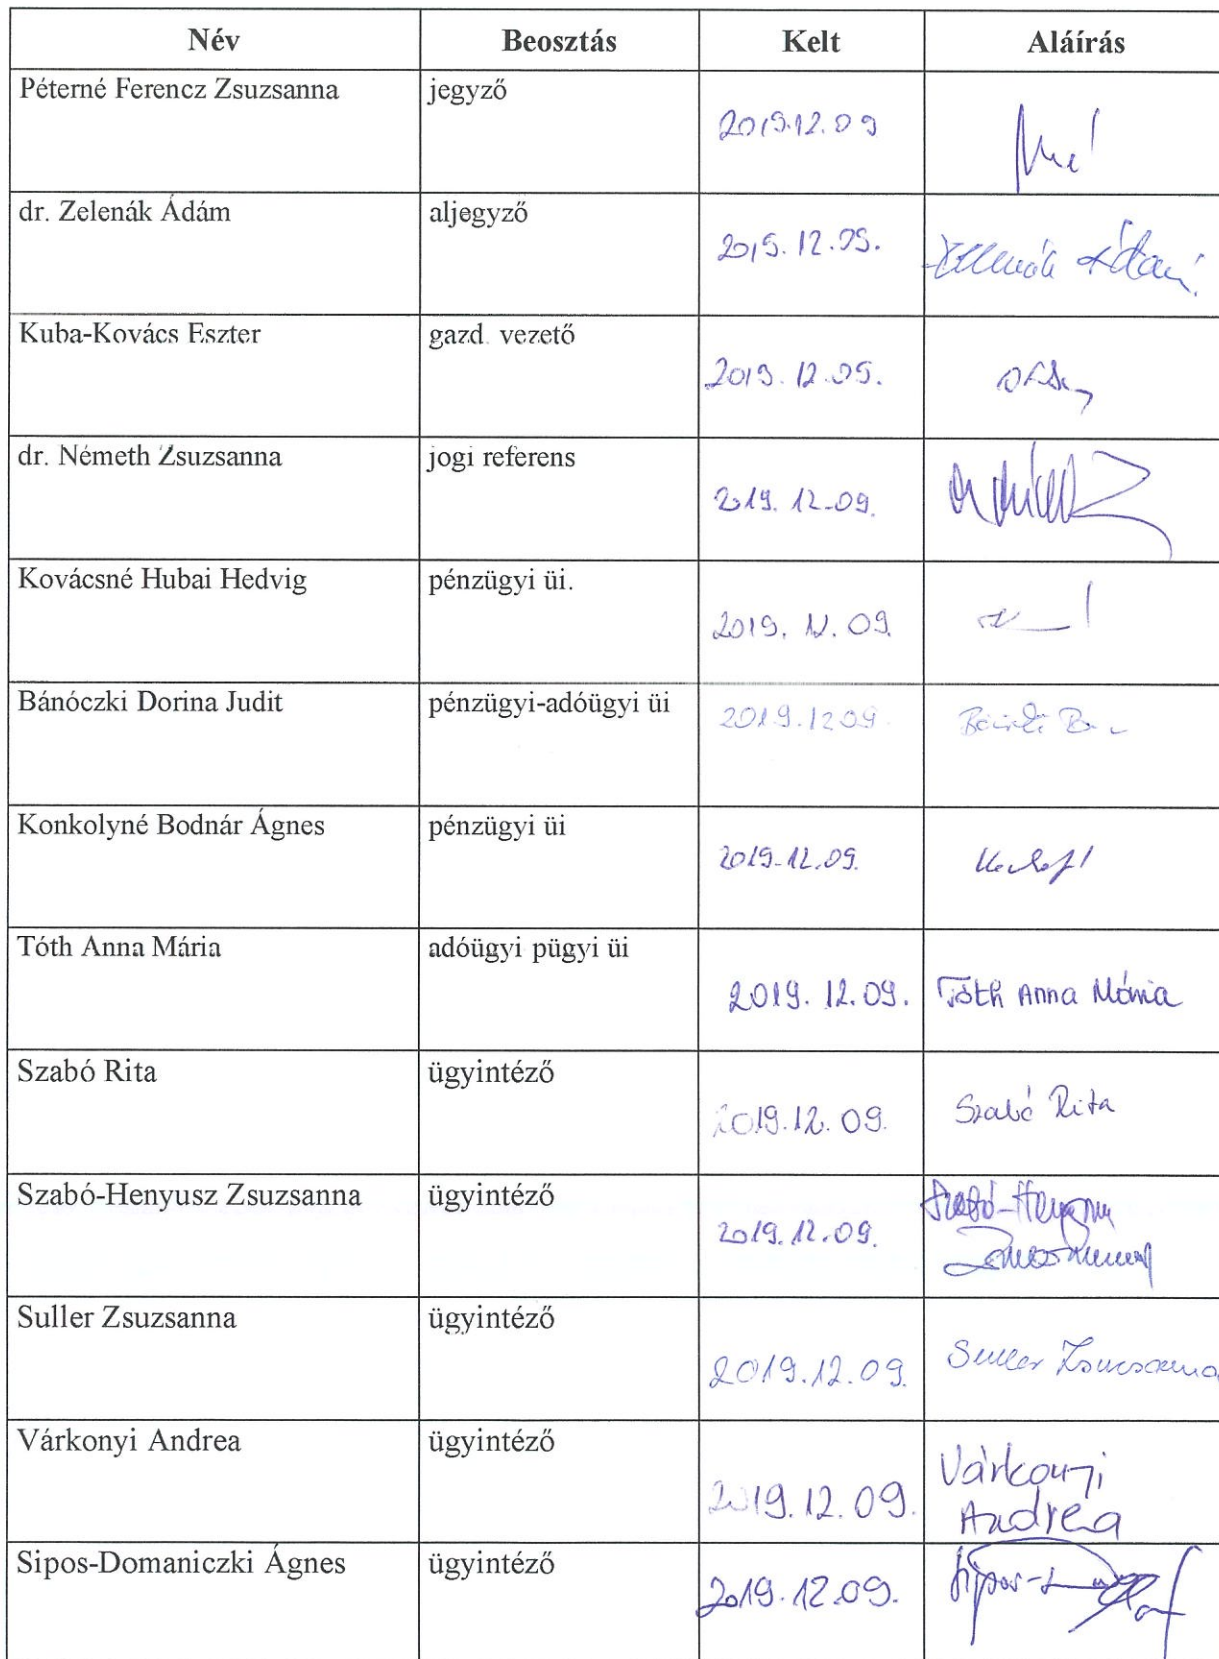 Név Beosztás Kelt Aláírás
Péterné Ferencz Zsuzsanna jegyző
2019.12.09
dr. Zelenák Ádám aljegyző
2019.12.09. Zelenák Ádám
Kuba-Kovács Eszter gazd. vezető
2019.12.09.
dr. Németh Zsuzsanna jogi referens
2019.12.09.
Kovácsné Hubai Hedvig pénzügyi üi.
2019.12.09.
Bánóczki Dorina Judit pénzügyi-adóügyi üi
2019.12.09.
Konkolyné Bodnár Ágnes pénzügyi üi
2019.12.09.
Tóth Anna Mária adóügyi pügyi üi
2019.12.09. Tóth Anna Mária
Szabó Rita ügyintéző
2019.12.09. Szabó Rita
Szabó-Henyusz Zsuzsanna ügyintéző
2019.12.09. Szabó-Henyusz
Zsuzsanna
Suller Zsuzsanna ügyintéző
2019.12.09. Suller Zsuzsanna
Várkonyi Andrea ügyintéző
2019.12.09. Várkonyi
Andrea
Sipos-Domaniczki Ágnes ügyintéző
2019.12.09.